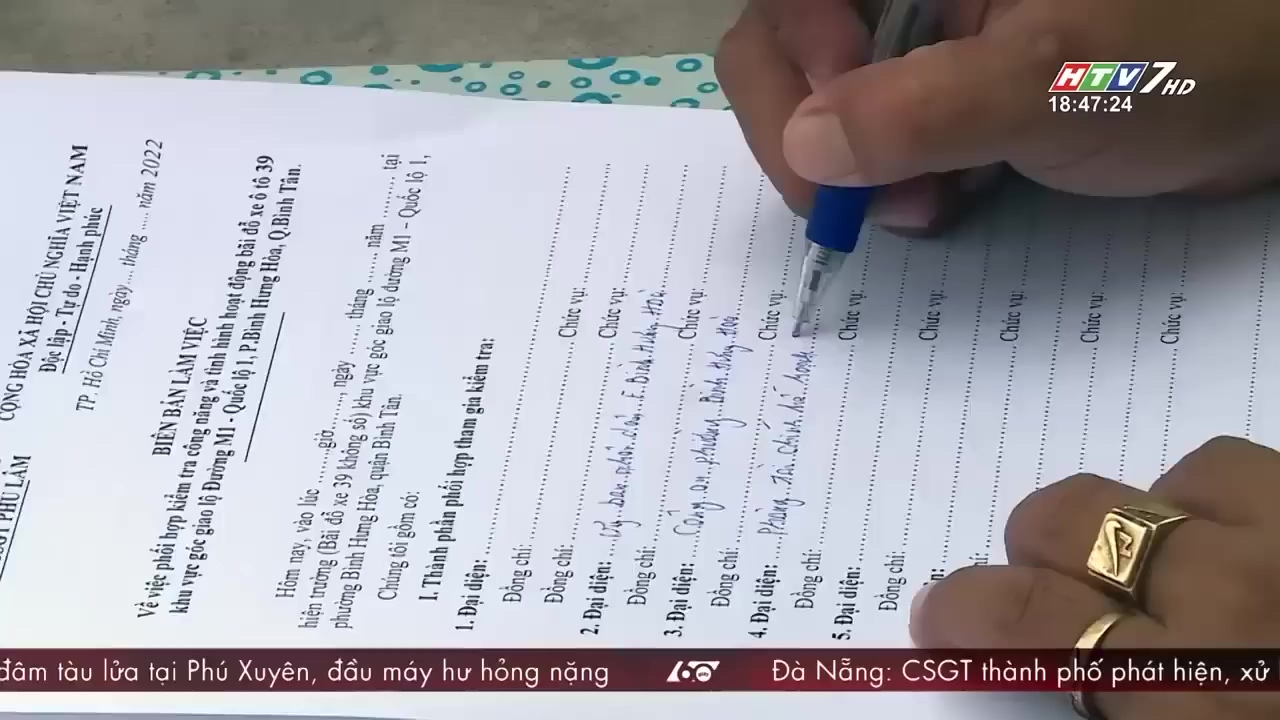 HTV7 HD
18:47:24
CSGT PHÚ LÂM
CỘNG HÒA XÃ HỘI CHỦ NGHĨA VIỆT NAM
Độc lập - Tự do - Hạnh phúc
TP. Hồ Chí Minh, ngày .... tháng ..... năm 2022
BIÊN BẢN LÀM VIỆC
Về việc phối hợp kiểm tra công năng và tình hình hoạt động bãi đỗ xe ô tô 39
khu vực góc giao lộ Đường M1 - Quốc lộ 1, P.Bình Hưng Hòa, Q.Bình Tân.
Hôm nay, vào lúc .........giờ........, ngày ....... tháng ....... năm ......... tại
hiện trường (Bãi đỗ xe 39 không số) khu vực góc giao lộ đường M1 - Quốc lộ 1,
phường Bình Hưng Hòa, quận Bình Tân.
Chúng tôi gồm có:
I. Thành phần phối hợp tham gia kiểm tra:
1. Đại diện:
Đồng chí:
Đồng chí: Chức vụ:
2. Đại diện: Uỷ ban nhân dân P. Bình Hưng Hoà
Đồng chí: Chức vụ:
3. Đại diện: Công an phường Bình Hưng Hoà
Đồng chí: Chức vụ:
4. Đại diện: Phòng Tài chính kế hoạch
Đồng chí:
5. Đại diện: Chức vụ:
Đồng chí:
Chức vụ:
Chức vụ:
Chức vụ:
Chức vụ:
đâm tàu lửa tại Phú Xuyên, đầu máy hư hỏng nặng
60 giây
Đà Nẵng: CSGT thành phố phát hiện, xử